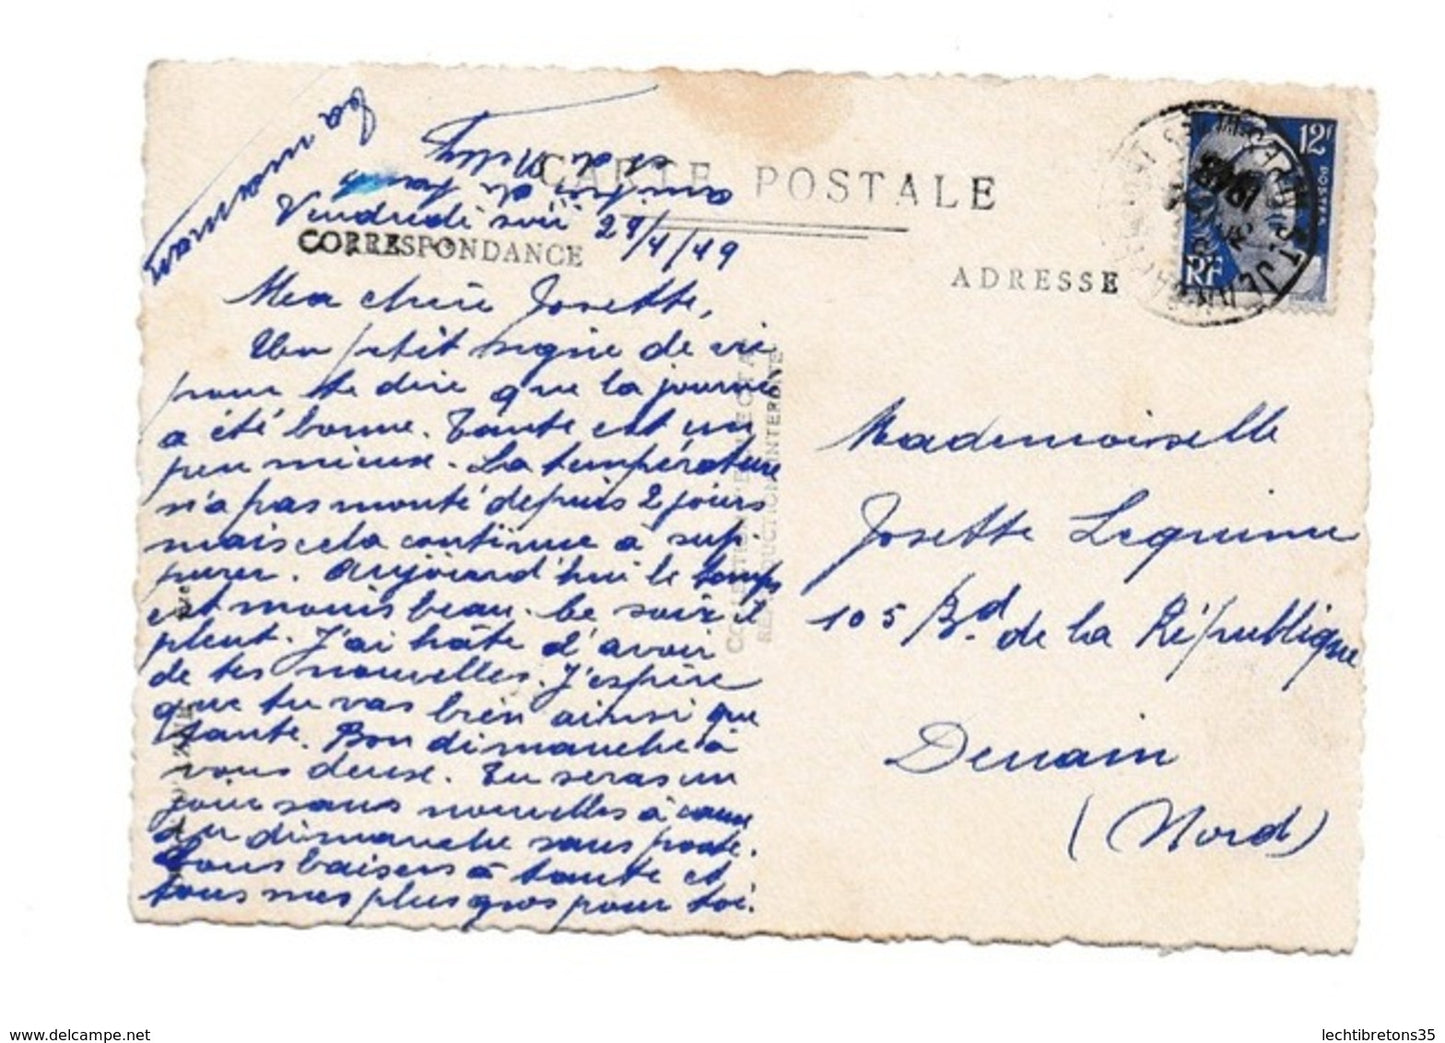 CARTE POSTALE
CORRESPONDANCE
ADRESSE
12F
POSTES
RF
Vendredi soir 29/4/49
Ma chère Josette,
Un petit signe de vie
pour te dire que la journée
a été bonne. Tante est un
peu mieux. La température
n'a pas monté depuis 2 jours
mais cela continue à sup
purer. Aujourd'hui le temps
est moins beau. Ce soir il
pleut. J'ai hâte d'avoir
de tes nouvelles. J'espère
que tu vas bien ainsi que
tante. Bon dimanche à
vous deux. Tu seras un
jour sans nouvelles à cause
du dimanche sans poste.
Bons baisers à tante et
tous mes plus gros pour toi.
Ta maman
amitiés de
et de Nelly
COLLECTION
REPRODUCTION INTERDITE
Mademoiselle
Josette Lequimme
105 Bd de la République
Denain
(Nord)
www.delcampe.net
lechtibretons35